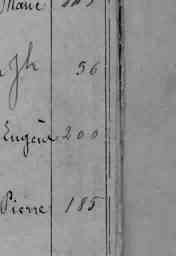 Marie
Jh 56
Eugène 200
Pierre 185